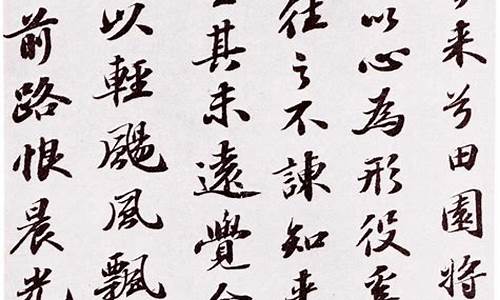 来兮田園将
以心為形役奚
往之不諫知来
其未遠覺今
以輕颺風飄
前路恨晨光